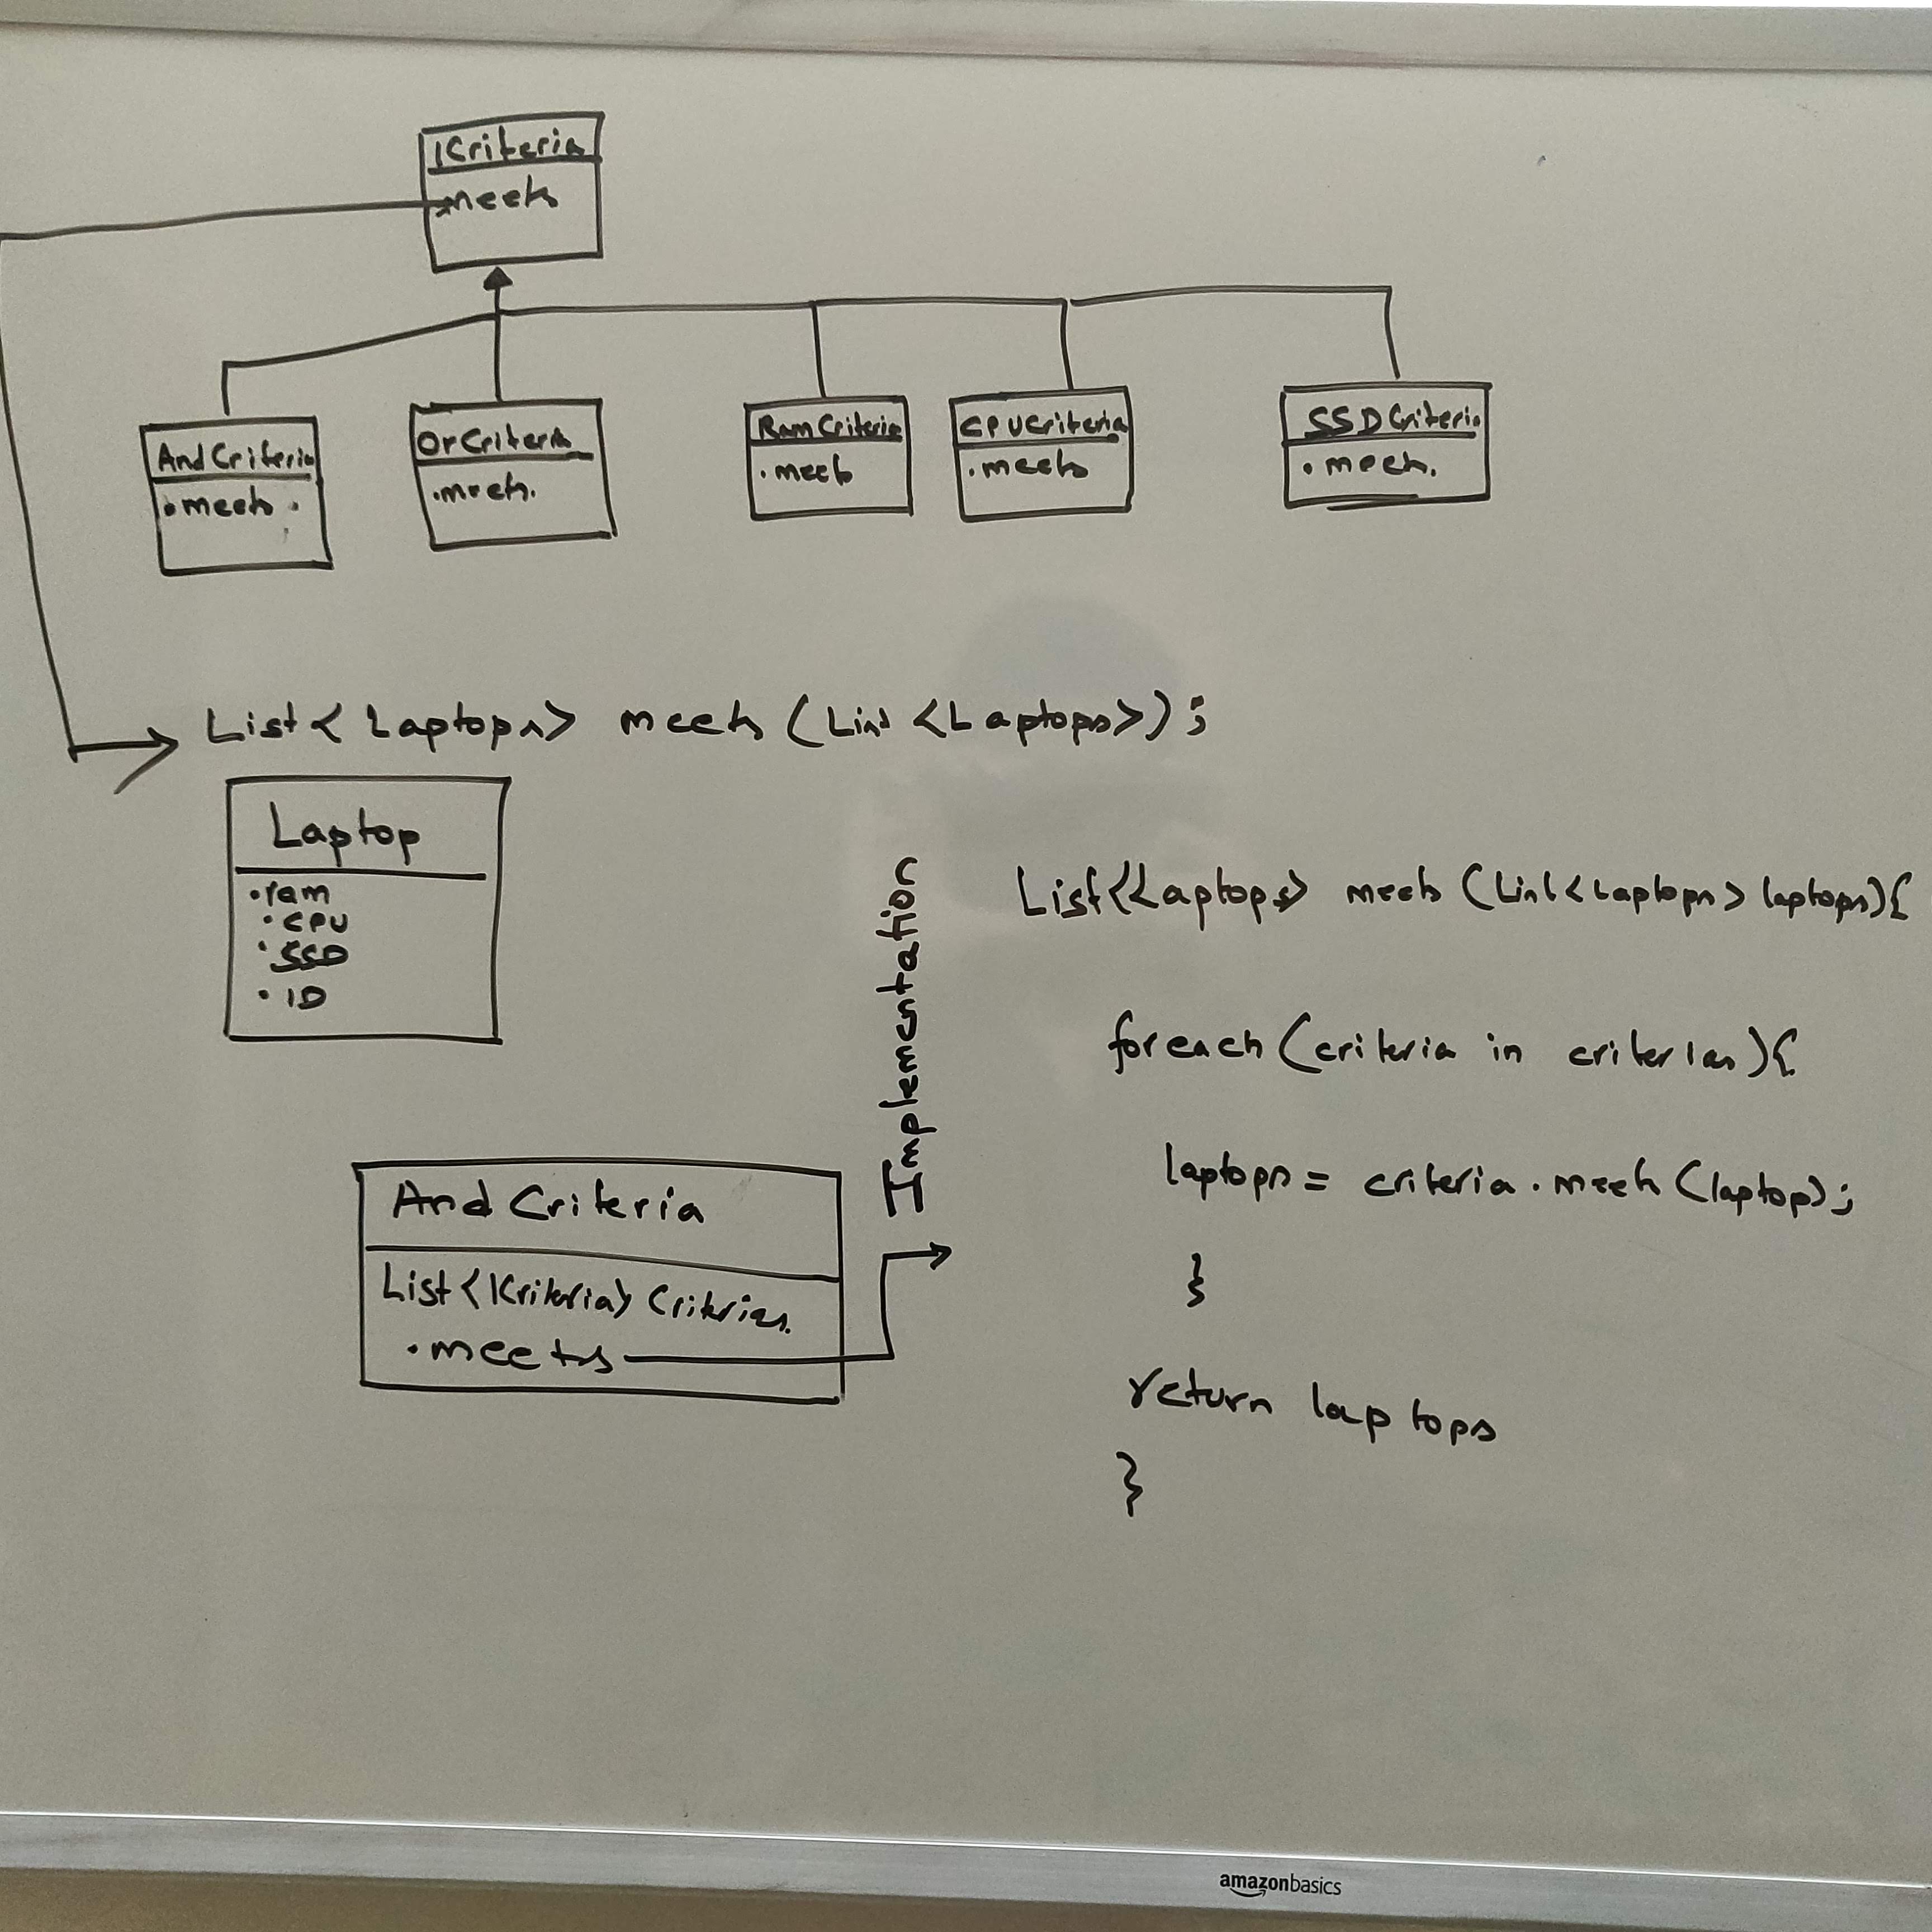 ICriteria
meets
AndCriteria
• meets
OrCriteria
• meets
RamCriteria
• meets
CPUCriteria
• meets
SSDCriteria
• meets
List<Laptops> meets (List <Laptops>);
Laptop
• ram
• CPU
• SSD
• ID
And Criteria
List<ICriteria> Criterias
• meets
Implementation
List<Laptops> meets (List<Laptops> laptops){
foreach (criteria in criterias){
laptops = criteria.meets (laptops);
}
return laptops
}
amazonbasics